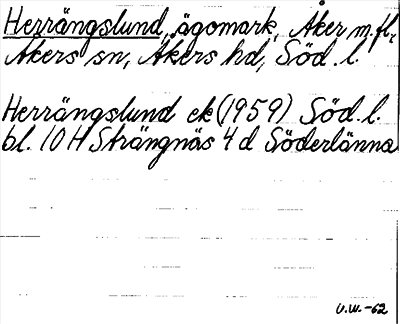 Herrängslund, ägomark, Åker m.fl.,
Åkers sn, Åkers hd, Söd.l.
Herrängslund ek (1959) Söd.l.
bl. 10 H Strängnäs 4 d Söderlänna
U.W.-62